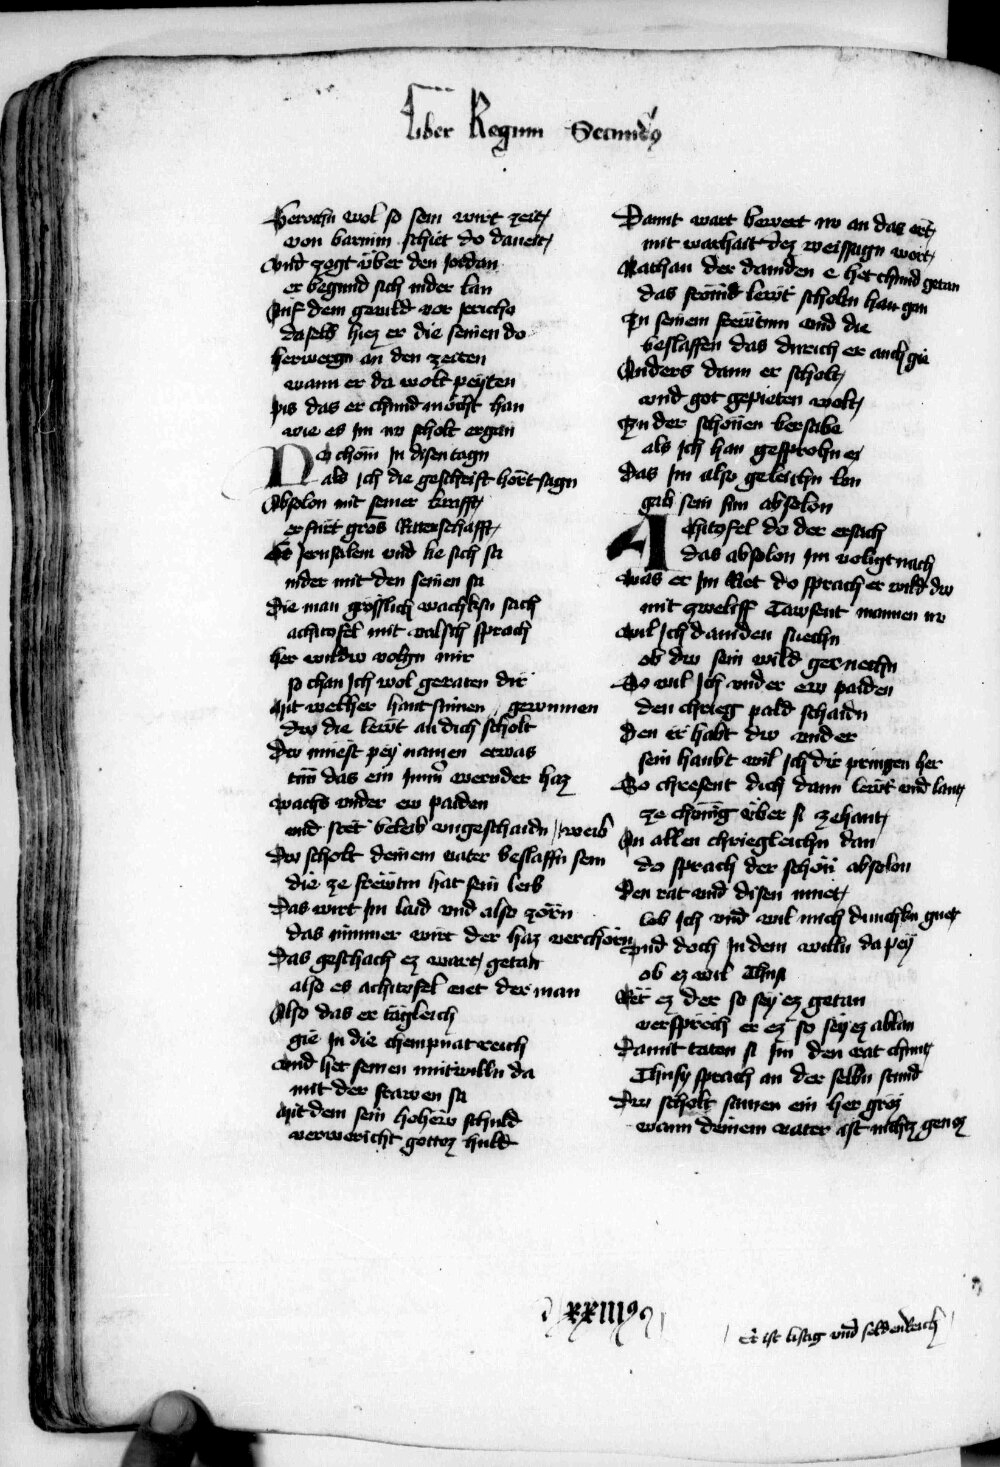 Liber Regum Secundus
Gerochn wol so sein wirt zeit
von barnim schiet do daueit
Vnd zogt über den Jordan
er begund sich nider lan
Auf dem gewild vor Jericho
daselb hiez er die seinen do
herwergn an den zeiten
wann er da wolt peyten
Pis das er chund möcht han
wie es Jm nv scholt ergan
No chom Jn disen tagn
als Jch die geschrift hort sagn
Absolon mit seiner krafft
er fürt gros Ritterschafft
Ge Jerusalem vnd lie sich sa
nider mit den seinen sa
Die man grösslich wachssn sach
achitofel mit valsch sprach
her wildw volgn mir
so chan Jch wol geraten dir
Mit welher hant sinnen gewinnen
dw die lewt an dich scholt
Dw muest pey namen etwas
tun das ein Jmmer werender haz
Wachs vnder ew paiden
vnd stet beleib vngeschaidn weib
Dw scholt deinem vater beslaffn sein
die ze frewtin hat sein leib
Das wirt Jm laid vnd also zorn
das nimmer wirt der haz verchorn
Das geschach ez wart getan
also es achitofel riet der man
Also das er tägleich
gie Jn die chempnat reich
Vnd het seinen mutwilln da
mit der frawen sa
Mit dem sein hohew schuld
verworicht gottez huld
Damit wart bewert nv an das ort
mit warhait dez weissagn wort
Nathan der dauiden e het chund getan
das frömd lewt scholn han gan
Zu seinem frewtinn vnd die
beslaffen das durich er auch gie
Anders dann er scholt
vnd got gepieten wolt
Zu der schonen bersabe
als Jch han gesprochn e
Das Jm also geleichn lon
gab sein sun absolon
Achitofel do der ersach
das absolon Jm voligt nach
Was er Jm Riet do sprach er wild dw
mit zweliff Tawsent mannen nv
Wil Jch dauiden suechn
ob dw sein wild geruechn
So wil Jch vnder ew paiden
den chrieg pald schaidn
Den ir habt dw vnd er
sein haubt wil Jch dir pringen her
So chresent dich dann lewt vnd lant
ze chönig über si zehant
An allen chriegleichn dan
do sprach der schön absolon
Den rat vnd disen muet
lob Jch vnd wil mich dunchkn guet
Vnd doch Jn dem willn da pey
ob ez wil Thusi
Rät ez der so sey ez getan
versprech er ez so sey ez ablan
Damit taten si Jm den rat chunt
Thusy sprach an der selbn stund
Dw scholt sainen ein her groz
wann deinem vater ist nichtz genoz
xxiiii9
Er ist listig vnd seldenreich